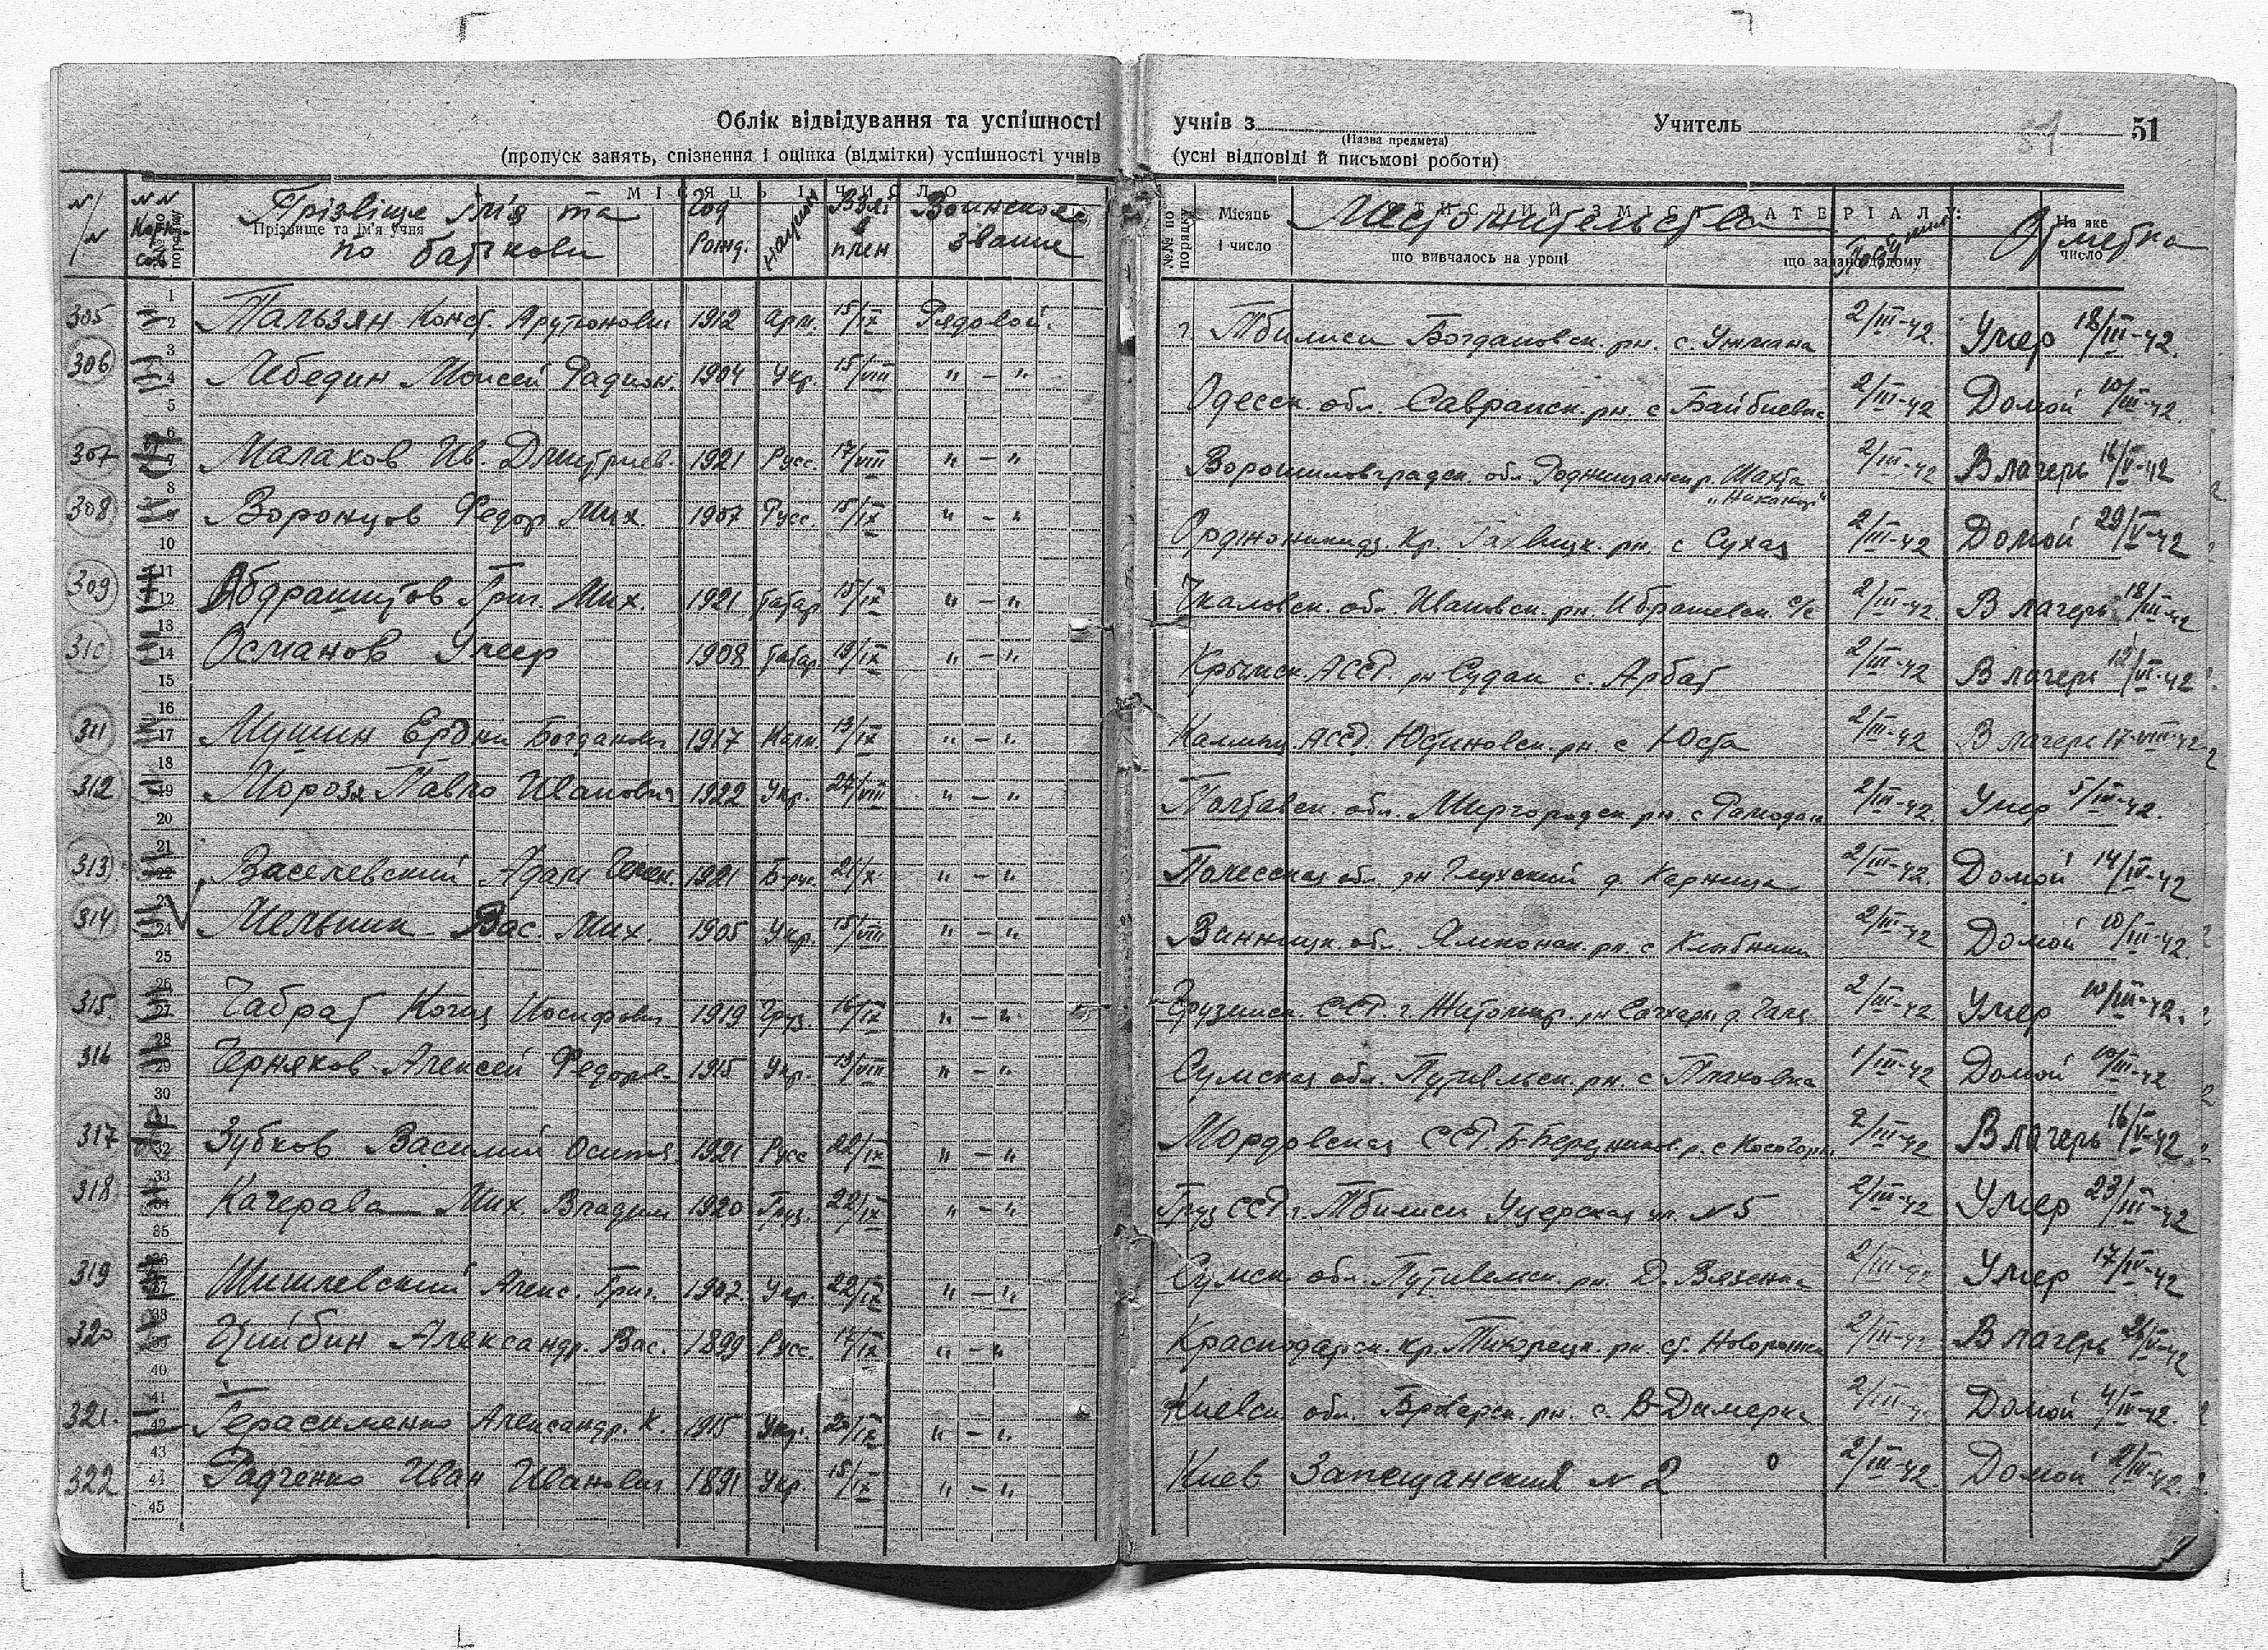 Облік відвідування та успішності учнів з Учитель 51
(Назва предмета)
(пропуск занять, спізнення і оцінка (відмітки) успішності учнів (усні відповіді й письмові роботи)
МІСЯЦЬ І ЧИСЛО
Прізвище та ім'я учня
Прізвіще ім'я та по батькови
Год рожд.
Взят. в плен
Воинское звание
№№ по порядку
Місяць і число
СТИСЛИЙ ЗМІСТ МАТЕРІАЛУ:
Местожительства
що вивчалось на уроці
що задано додому
На яке число
Отметка
305 Пальзян Конст. Арутюнович 1912 Арм. 15/IX Рядовой. г Тбилиси Богдановск. рн. с. 2/III-42. Умер 18/III-42.
306 Лебедин Моисей Радион. 1904 Укр. 15/VIII " - " Одесск. обл. Савранск. рн. с 2/III-42 Домой 10/III-42.
307 Малахов Ив. Дмитриев. 1921 Русс. 17/VIII " - " Ворошиловградск. обл. Шахта 2/III-42 В лагерь 16/V-42
308 Воронцов Федор Мих. 1907 Русс. 15/IX " - " Орджоникидз. Кр. рн. с Сухая 2/III-42 Домой 29/V-42
309 Абдрашитов Григ. Мих. 1921 татар. 15/IX " - " Чкаловск. обл. Ивановск. рн. Ибрашевск. с/с 2/III-42 В лагерь 18/III-42
310 Османов Умер 1908 татар. 19/IX " - " Крымск. АССР. рн Судак с. Арбат 2/III-42 В лагерь 12/VI-42
311 Мушин Ердни Богданович 1917 Калм. 13/IX " - " Калмыц. АССР. Юстиновск. рн. с Юста 2/III-42 В лагерь 17-VIII-42
312 Мороза Павло Иванович 1922 Укр. 27/VIII " - " Полтавск. обл. Миргородск. рн. с Рамодан 2/III-42. Умер 5/IV-42.
313 Васелевский Адам 1921 Б-рус. 21/X " - " Полесская обл. рн Глусский д. 2/III-42. Домой 14/IV-42
314 Мельник Вас. Мих. 1905 Укр. 15/VIII " - " Винницк. обл. рн. с 2/III-42 Домой 10/III-42.
315. Иосифович 1919 Груз. 16/IX " - " Грузинск. ССР. 2/III-42 Умер 10/III-42.
316 Черняков Алексей Федоров. 1915 Укр. 13/VIII " - " Сумская обл. Путивльск. рн. с 1/III-42 Домой 10/III-42
317 Зубков Василий 1921 Русс 22/IX " - " Мордовская ССР. Б-Березников. р. с 2/III-42 В лагерь 16/V-42
318 Качерава Мих. Владим 1920 Груз. 22/IX " - " Груз ССР г. Тбилиси Уцерская ул. N 5 2/III-42 Умер 23/III-42
319 Шишлевский Алекс. Григ. 1907 Укр. 22/IX " - " Сумск. обл. Путивльск. рн. Д. Вязенка 2/III-42 Умер 17/IV-42
320 Цийбин Александр. Вас. 1899 Русс. 17/IX " - " Краснодарск. кр. Тихорецк. рн ст. 2/III-42 В лагерь
321. Герасименко Александр. К. 1915 Укр. 23/IX " - " Киевск. обл. Броварск. рн. с. В-Дымерка 2/III-42 Домой 4/IV-42.
322 Радченко Иван Иванович 1891 Укр. 15/IX " - " Киев N 2 2/III-42. Домой